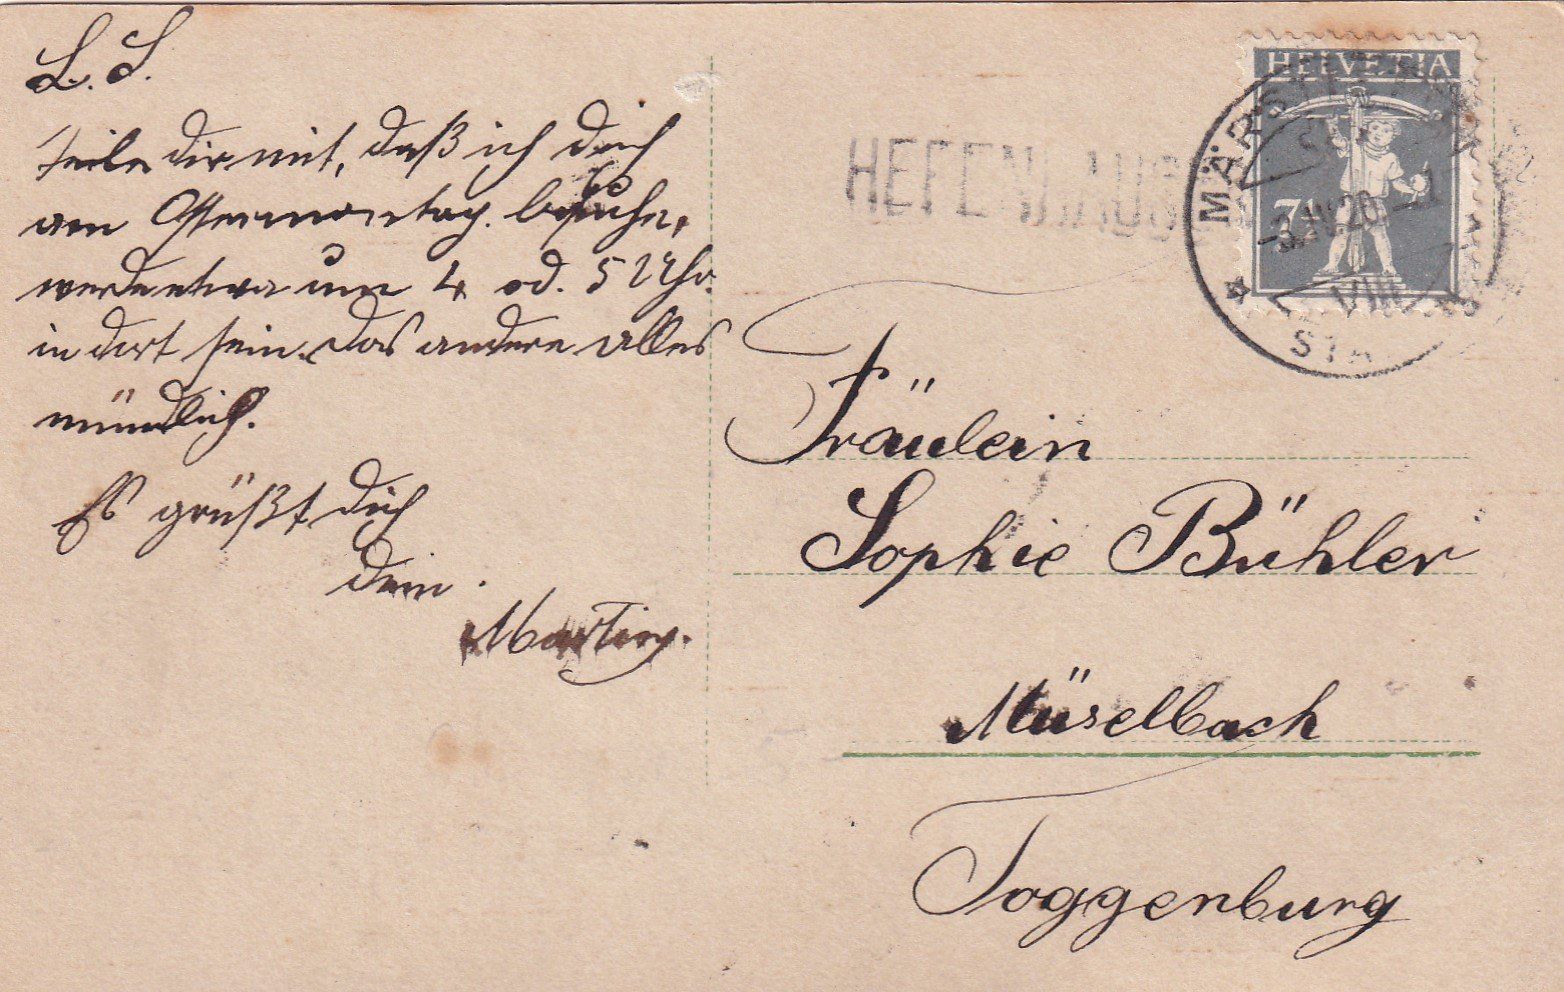 L. S.
teile dir mit, daß ich dich
am Ostermontag besuche,
werde etwa um 4 od. 5 Uhr.
in dort sein. das andere alles
mündlich.
Es grüßt dich
dein
Martin.
HEFENHAUS
HELVETIA
7½
MÄRSTETTEN
-3.IV.20.
VIII
STA
Fräulein
Sophie Bühler
Müselbach
Toggenburg